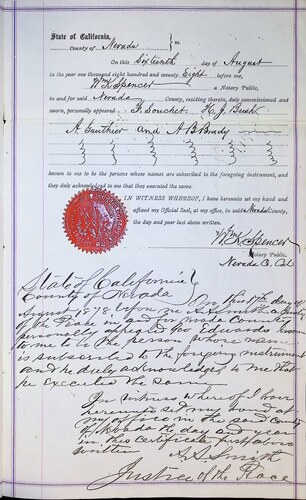 State of California,
County of Nevada } ss.
On this Sixteenth day of August
in the year one thousand eight hundred and seventy Eight before me,
Wm K Spencer a Notary Public,
in and for said Nevada County, residing therein, duly commissioned and
sworn, personally appeared F. Souchet H. J. Bush
A. Gauthier and A B Brady
known to me to be the persons whose names are subscribed to the foregoing instrument, and
they duly acknowledged to me that they executed the same.
IN WITNESS WHEREOF, I have hereunto set my hand and
affixed my Official Seal, at my office, in said Nevada County,
the day and year last above written.
Wm K Spencer
Notary Public.
Nevada Co. Cal
State of California }
County of Nevada
On this 17th day of
August 1878 before me A. Smith a Justice
of the Peace in and for Nevada County
personally appeared Edwards known
to me to be the person whose name
is subscribed to the foregoing instrument
and he duly acknowledged to me that
he executed the same
In witness whereof I have
hereunto set my hand at
my office in the said County
of Nevada the day and year
in this certificate first above
written
Smith
Justice of the Peace